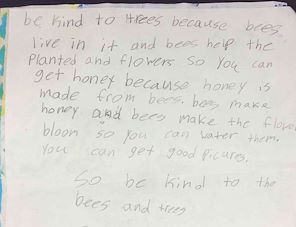 be kind to trees because bees
live in it and bees help the
Planted and flowers so you can
get honey because honey is
made from bees. bees make
honey and bees make the flow
bloom so you can water them.
You can get good Picures.
So be kind to the
bees and trees